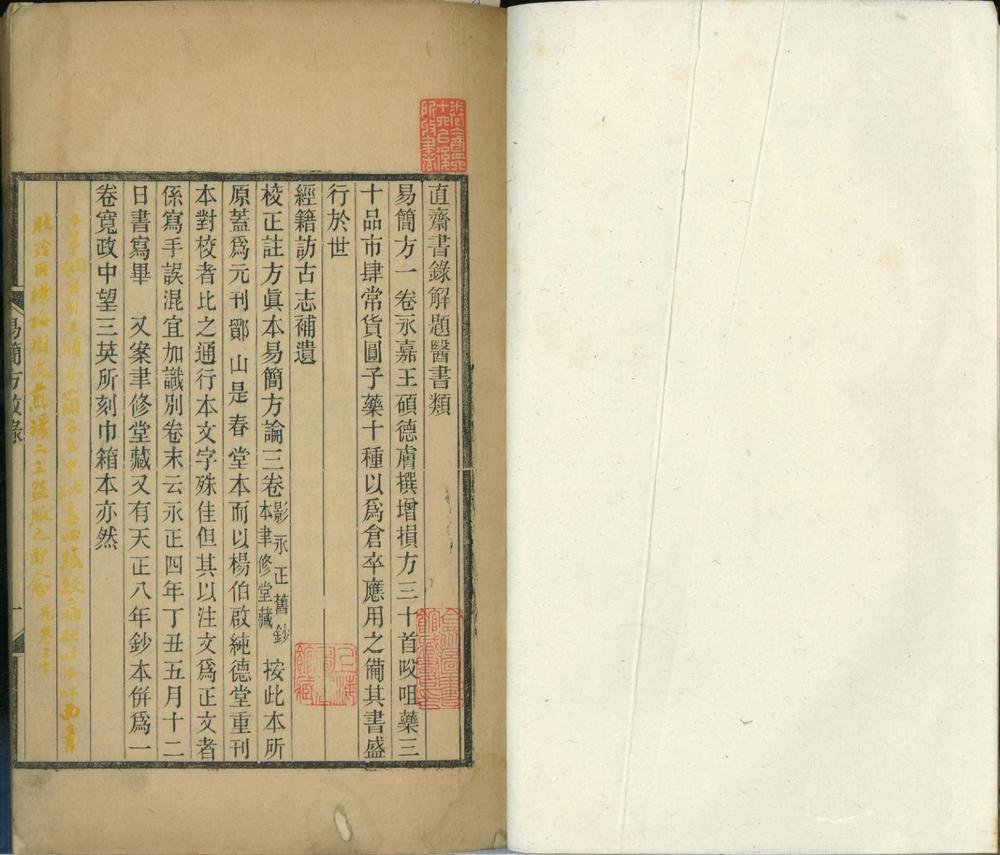 直齋書錄解題醫書類
易簡方一卷永嘉王碩德膚撰增損方三十首㕮咀藥三
十品市肆常貨圓子藥十種以爲倉卒應用之備其書盛
行於世
經籍訪古志補遺
校正註方眞本易簡方論三卷影永正舊鈔本聿修堂藏 按此本所
原蓋爲元刊鄮山是春堂本而以楊伯啟純德堂重刊
本對校者比之通行本文字殊佳但其以注文爲正文者
係寫手誤混宜加識別卷末云永正四年丁丑五月十二
日書寫畢 又案聿修堂藏又有天正八年鈔本併爲一
卷寬政中望三英所刻巾箱本亦然
用楊梅樹皮煎湯二三盌服之卽愈
易簡方敘錄
一
上海圖書館藏